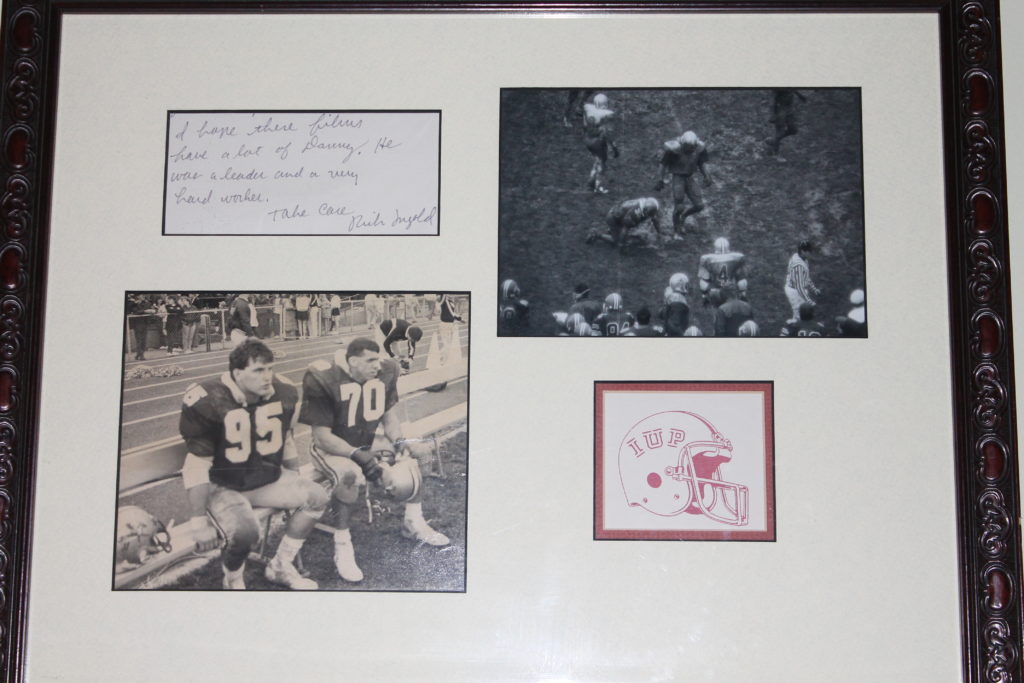 "I hope these films
have a lot of Danny. He
was a leader and a very
hard worker.
Take Care
Rich Ingold
4
95
70
IUP